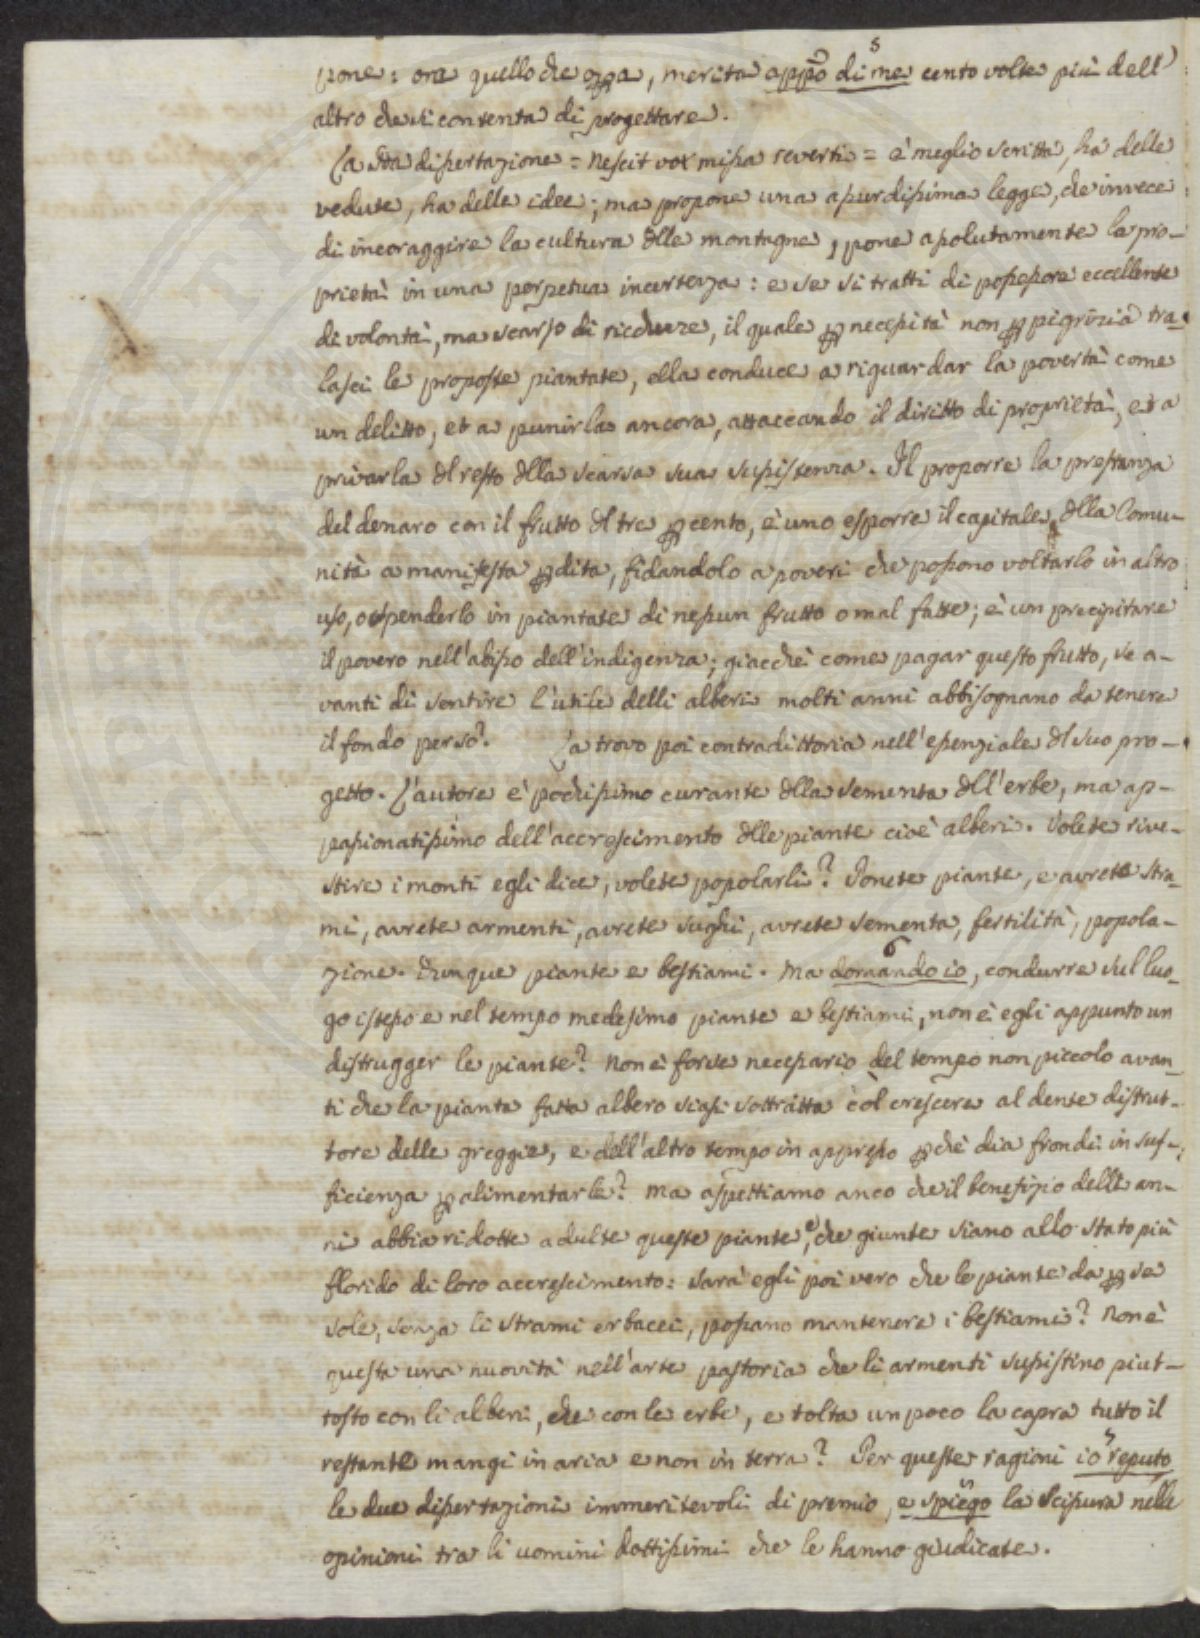 pone: ora quello che opa, merita appo di me cento volte più dell'
altro che si contenta di progettare.
La Sda dissertazione = Nescit vox missa reverti = è meglio scritta, ha delle
vedute, ha delle idee; ma propone una assurdissima legge, che invece
di incoraggire la cultura dlle montagne, pone assolutamente la pro-
prietà in una perpetua incertezza: e se si tratti di possessore eccellente
di volontà, ma scarso di ricchezze, il quale p necessità non p pigrizia tra-
lasci le proposte piantate, ella conduce a riguardar la povertà come
un delitto, et a punirla ancora, attaccando il diritto di proprietà, et a
privarla dl resto dlla scarsa sua sussistenza. Il proporre la prestanza
del denaro con il frutto dl tre p cento, è uno esporre il capitale dlla Comu-
nità a manifesta pdita, fidandolo a poveri che possono voltarlo in altro
uso, o spenderlo in piantate di nessun frutto o mal fatte; è un precipitare
il povero nell'abisso dell'indigenza; giacchè come pagar questo frutto, se a-
vanti di sentire l'utile delli alberi molti anni abbisognano da tenere
il fondo perso? La trovo poi contradittoria nell'essenziale dl suo pro-
getto. L'autore è pochissimo curante dlla sementa dll'erbe, ma ap-
passionatissimo dell'accrescimento dlle piante cioè alberi. Volete rive-
stire i monti egli dice, volete popolarli? Ponete piante, e avrete stra-
mi, avrete armenti, avrete sughi, avrete sementa, fertilità, popola-
zione. Dunque piante e bestiami. Ma domando io, condurre sul luo-
go istesso e nel tempo medesimo piante e bestiami, non è egli appunto un
distrugger le piante? Non è forse necessario del tempo non piccolo avan-
ti che la pianta fatta albero siasi sottratta col crescere al dente distrut-
tore delle greggie, e dell'altro tempo in appresso pchè dia frondi in suf-
ficienza p alimentarle? Ma aspettiamo anco che il benefizio delli an-
ni abbia ridotte adulte queste piante, e che giunte siano allo stato più
florido di loro accrescimento: sarà egli poi vero che le piante da p se
sole, senza li strami erbacei, possano mantenere i bestiami? Non è
questa una nuovità nell'arte pastoria che li armenti sussistino piut-
tosto con li alberi, che con le erbe, e tolta un poco la capra tutto il
restante mangi in aria e non in terra? Per queste ragioni io reputo
le due dissertazioni immeritevoli di premio, e spiego la scissura nelle
opinioni tra li uomini dottissimi che le hanno giudicate.